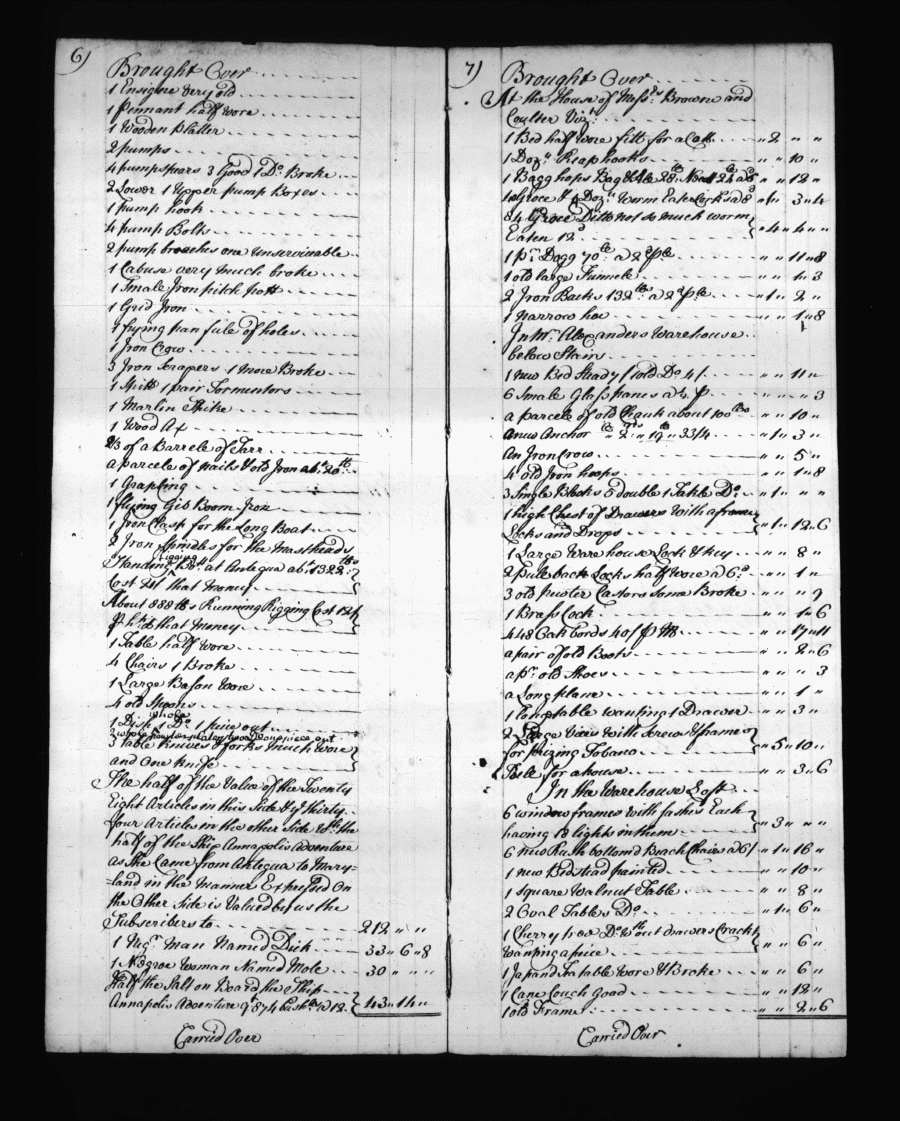 6)
Brought Over
1 Ensigne very old
1 Pennant half wore
1 Wooden Platter
2 pumps
4 pumpspears 3 Good 1 Do. Broke
2 Lower 1 Upper pump Boxes
1 pump hook
4 pump Bolts
2 pump broaches one Unserviceable
1 Cabuse very much broke
1 Smale Iron pitch pott
1 Grid Iron
1 frying pan full of holes
1 Iron Crow
3 Iron Scrapers 1 more Broke
1 Spitt 1 pair Tormentors
1 Marlin Spike
1 Wood Ax
2/3 of a Barrele of Tarr
a parcele of nails & old Iron abt. 20 lb
1 Grapling
1 flying Gib Boom Iron
1 Iron Clasp for the Long Boat
2 Iron Spindles for the Mastheads
Standing rigging Bot. at Antegua abt. 1322 lbs
Cost that money
About 888 lbs Running Rigging Cost
that money
1 Table half wore
4 Chairs 1 Broke
1 Large Bason wore
4 old Spoons
1 Dish whole 1 Do. 1 piece out
2 whole pewter plates two Do. one piece out
3 Table knives & forks much wore
and One knife
The half of the Value of the Twenty
Eight Articles in this Side & ye thirty
four Articles in the other Side wth. the
half of the Ship Annapolis Adventure
as She Came from Antegua to Mary-
land in the Manner Expressed On
the Other Side is Valued by us the
Subscribers to 212 " "
1 Negr. man Named Dick 33 " 6 " 8
1 Negroe Woman Named Mole 30 " " "
Half the Salt on Board the Ship
Annapolis Adventure qt. 874 bushls. @ 12 43 " 14 "
Carried Over
7)
Brought Over
At the House of Messrs. Browne and
Coulter Vizt.
1 Bed half wore fitt for a Cott " 2 " "
1 Dozn. Reap hooks " " 10 "
1 Bagg hops " " 12 "
Groce & Dozn. Worm Eaten Corks a 8d " 1 " 3 " 4
84 Groce Ditto not so much worm
Eaten 12d " 4 " 4 "
1 ps. Dagg 70 lb a 2d p lb " " 11 " 8
1 old large Funnele " " 1 " 3
2 Iron Backs 132 lbs a 2d p lb " 1 " 2 "
1 narrow how " " 1 " 8
In Mr. Alexanders Warehouse
below Stairs
1 new Bed Steady 1 old Do. 4/ " " 11 "
6 Smale Glass panes a ½ p " " " 3
a parcele of old Chauk about 100 lbs " " 10 "
a new Anchor " 2 " 19 " 33/4 " 1 " 3 "
An Iron Crow " " 5 "
4 old Iron hoops " " 1 " 8
3 Single Blocks 5 double 1 Takle Do. " 1 " " "
1 high Chest of Drawers With a frame
Locks and Drops " 1 " 12 " 6
1 Large Ware house Lock & key " " 8 "
2 pulle back Locks half wore a 6d " " 1 "
3 old pewter Castors Some Broke " " " 9
1 Brass Cock " " 1 " 6
448 Oak bords 40/ p M " " 17 " 11
a pair of old Boots " " 2 " 6
a pr. old Shoes " " " 3
a Long plane " " 1 "
1 Long table wanting 1 Drawer " " 3 "
2 Large Vises With Screws & frames
for prizing Tobacco " 5 " 10 "
for a house " " 3 " 6
In the Warehouse Loft
6 window frames with sashes Each
having 18 lights in them " 3 " " "
6 new Rush bottomd Beach Chairs a 6/ " 1 " 16 "
1 new Bedstead painted " " 10 "
1 square Walnut Table " " 8 "
2 Oval Tables Do. " 1 " 6 "
1 Cherry tree Do. wthout drawers Crackt
Wanting a piece " " 6 "
1 Japand Tea table wore & Broke " " 6 "
1 Cane Couch Good " " 12 "
1 old Frame " " 2 " 6
Carried Over